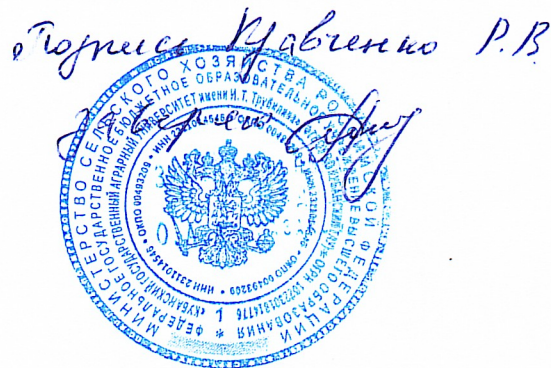 Подпись Кравченко Р.В.
заверяю
МИНИСТЕРСТВО СЕЛЬСКОГО ХОЗЯЙСТВА РОССИЙСКОЙ ФЕДЕРАЦИИ
ФЕДЕРАЛЬНОЕ ГОСУДАРСТВЕННОЕ БЮДЖЕТНОЕ ОБРАЗОВАТЕЛЬНОЕ УЧРЕЖДЕНИЕ ВЫСШЕГО ОБРАЗОВАНИЯ
«КУБАНСКИЙ ГОСУДАРСТВЕННЫЙ АГРАРНЫЙ УНИВЕРСИТЕТ имени И. Т. Трубилина»
ИНН 2311014546 • ОКПО 00493209
1